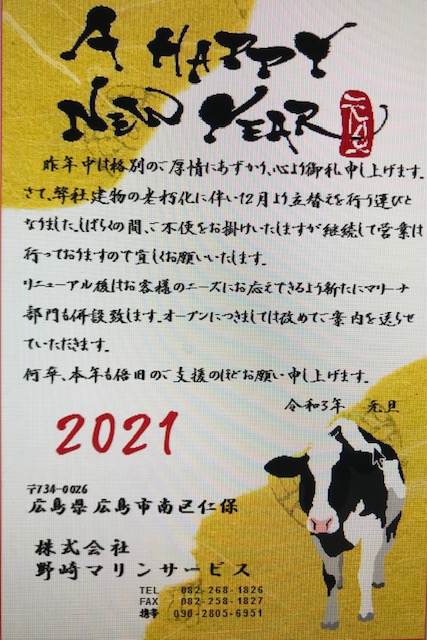 A HAPPY
NEW YEAR
元旦
昨年中は格別のご厚情にあずかり、心より御礼申し上げます。
さて、弊社建物の老朽化に伴い12月より立替えを行う運びと
なりました。しばらくの間、ご不便をお掛けいたしますが継続して営業は
行っておりますので宜しくお願いいたします。
リニューアル後はお客様のニーズにお応えできるよう新たにマリーナ
部門も併設致します。オープンにつきましては改めてご案内を送らせ
ていただきます。
何卒、本年も倍旧のご支援のほどお願い申し上げます。
令和3年 元旦
2021
〒734-0026
広島県広島市南区仁保
株式会社
野崎マリンサービス
TEL 082-268-1826
FAX 082-258-1827
携帯 090-2805-6951